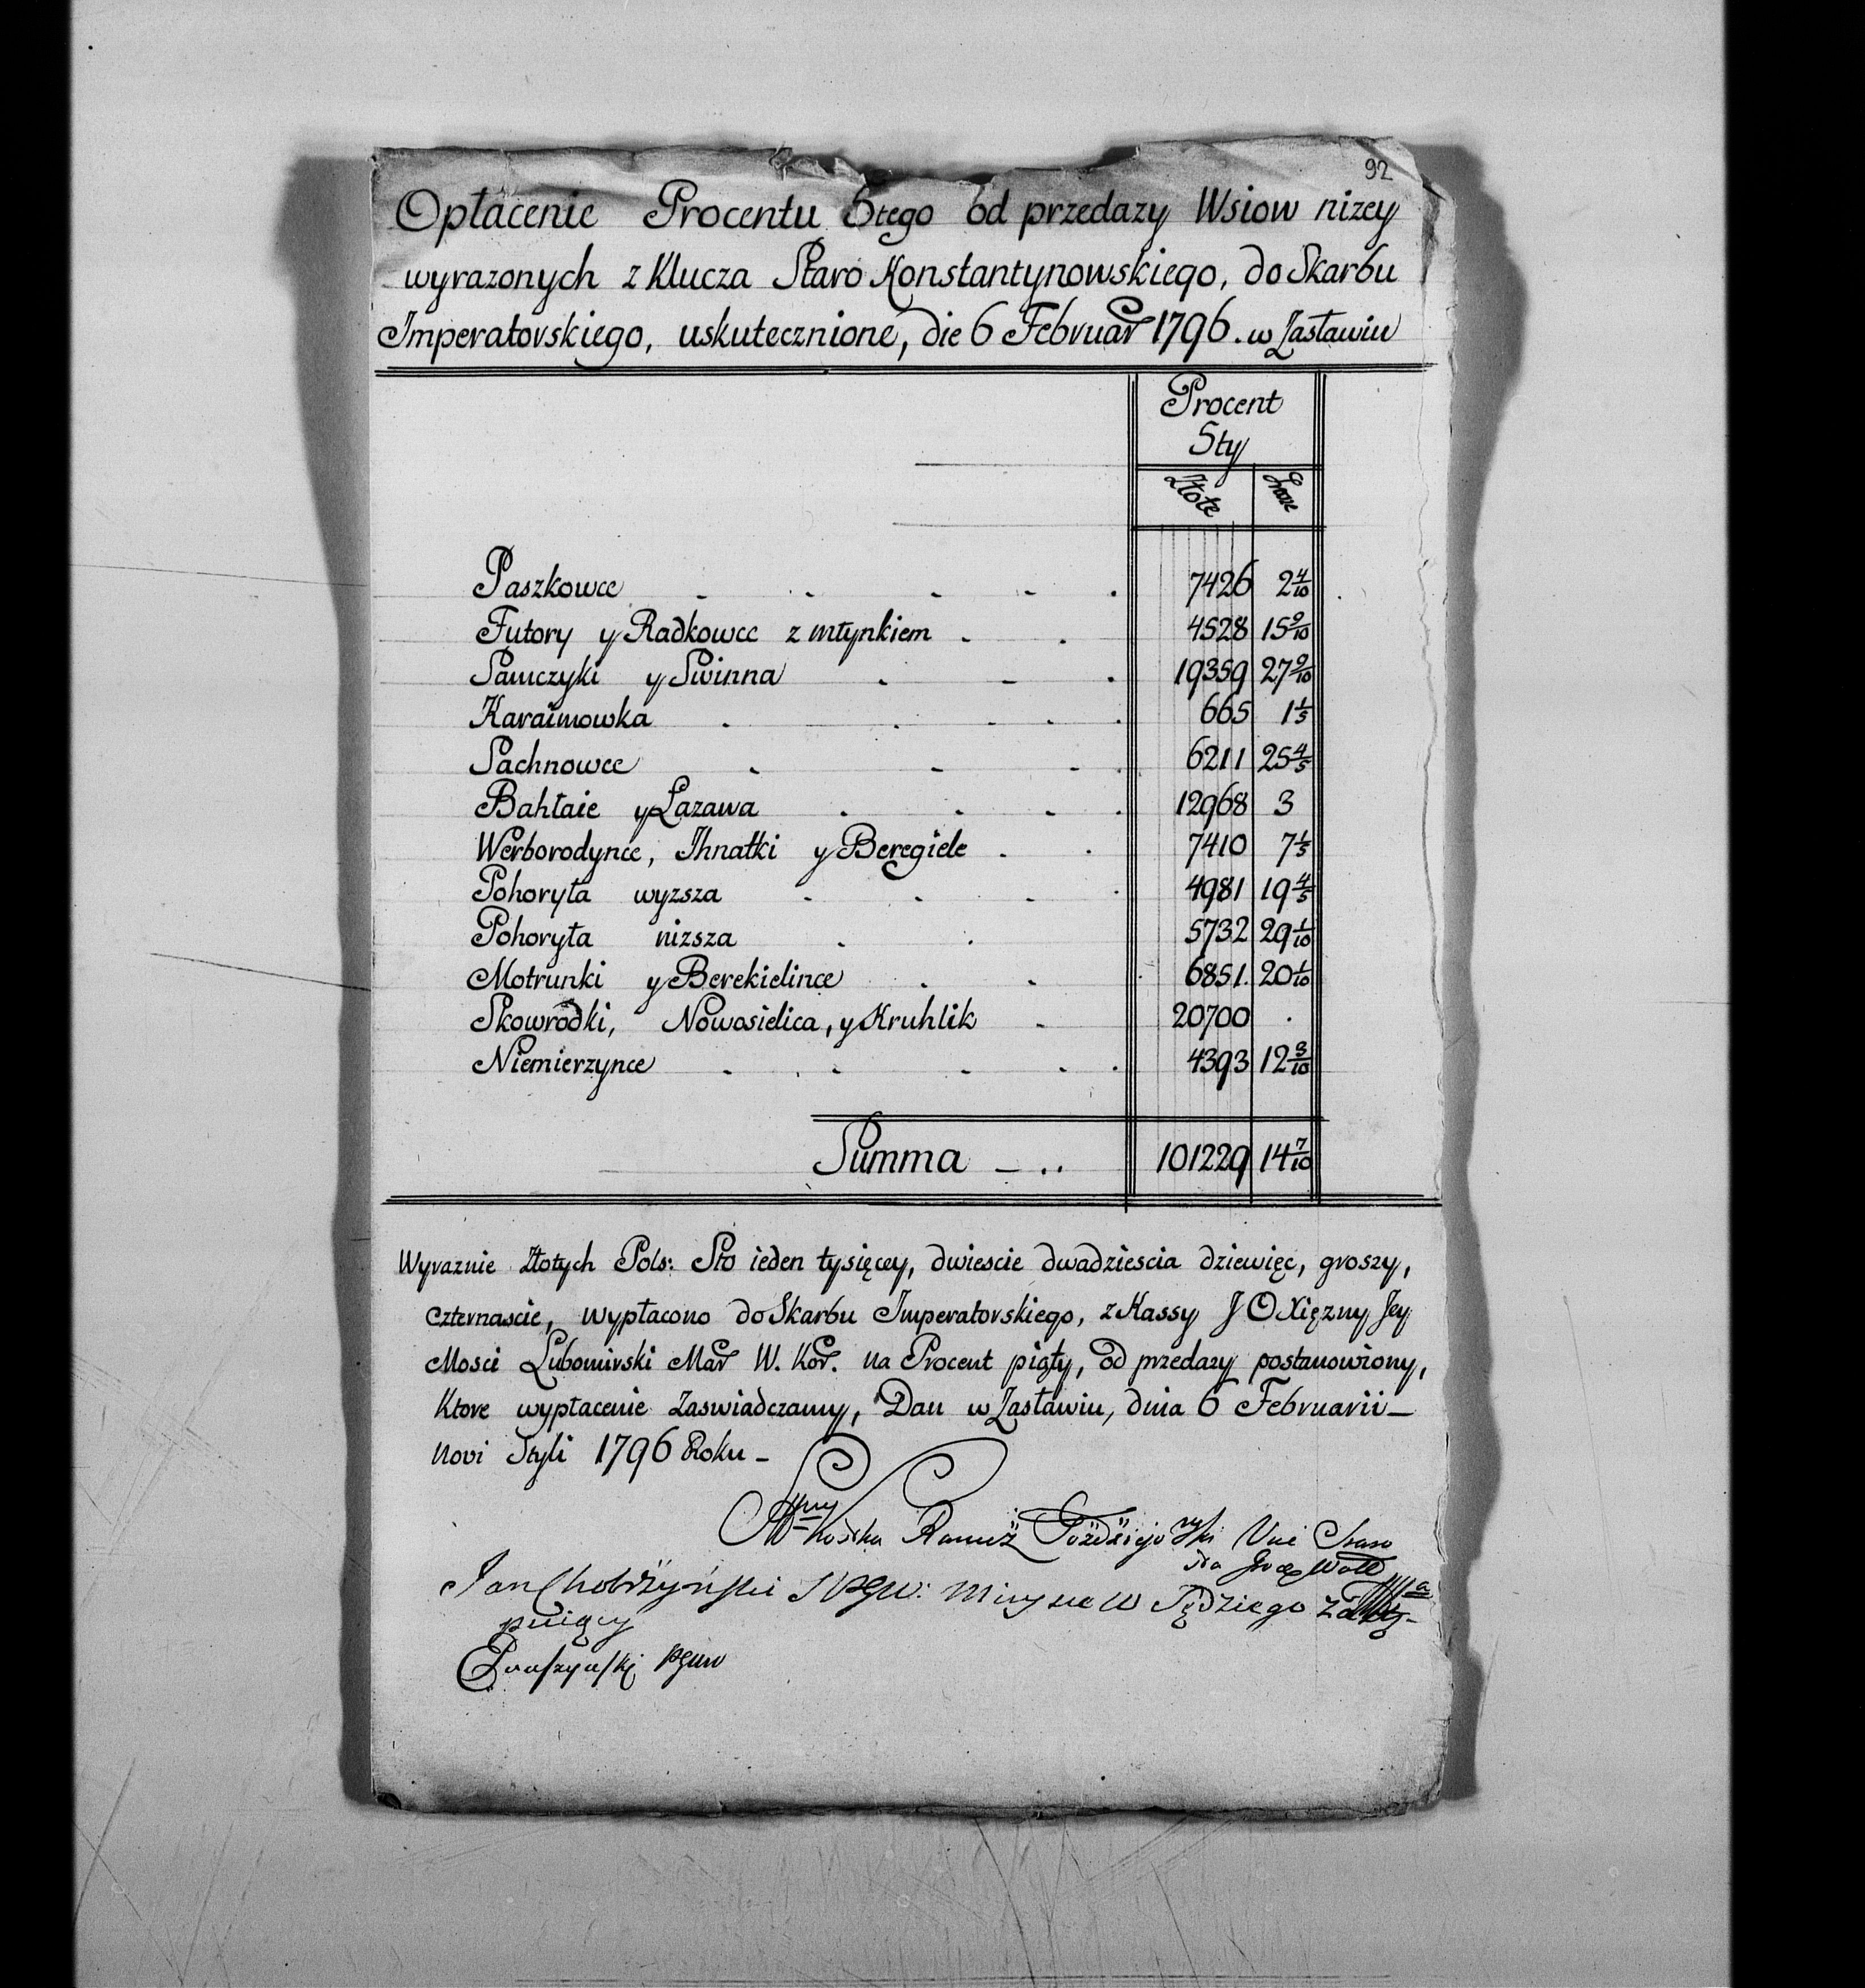 92
Opłacenie Procentu 5tego od przedazy Wsiow nizey
wyrazonych z Klucza Staro Konstantynowskiego, do Skarbu
Imperatorskiego, uskutecznione, die 6 Februar 1796. w Zasławiu
Procent
5ty
Złote Grosze
Paszkowce 7426 2 4/10
Futory y Radkowce z młynkiem 4528 15 9/10
Samczyki y Swinna 19359 27 9/10
Karaimowka 665 1 1/5
Sachnowce 6211 25 4/5
Bahłaie y Lazawa 12968 3
Werborodynce, Ihnatki y Beregiele 7410 7 1/5
Pohoryła wyzsza 4981 19 4/5
Pohoryła nizsza 5732 29 1/10
Motrunki y Berekielince 6851. 20 1/10
Skowrodki, Nowosielica, y Kruhlik 20700 .
Niemierzynce 4393 12 3/10
Summa 101229 14 7/10
Wyraznie Złotych Pols: Sto ieden tysięcey, dwiescie dwadziescia dziewięc, groszy,
czternascie, wypłacono do Skarbu Imperatorskiego, z Kassy J O Xięzny Jey
Mosci Lubomirski Mar W. Kor. na Procent piąty, od przedazy postanowiony,
Ktore wypłacenie zaswiadczamy, Dan w Zasławiu, dnia 6 Februarii
Novi Styli 1796 Roku
Kostka
Jan Chobrzyński w Sędziego
Pruszynski pgwo